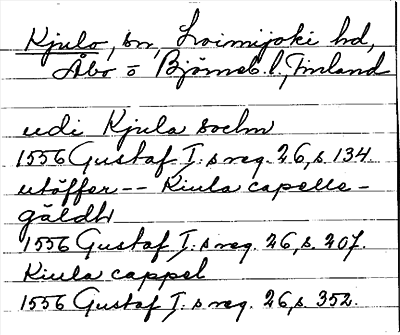 Kjulo, sn, Loimijoki hd,
Åbo o Björneb. l., Finland
udi Kjula sochn
1556 Gustaf I:s reg. 26, s. 134.
utöffer -- Kiula capelle-
gäldh
1556 Gustaf I:s reg. 26, s. 207.
Kiula cappel
1556 Gustaf I:s reg. 26, s. 352.